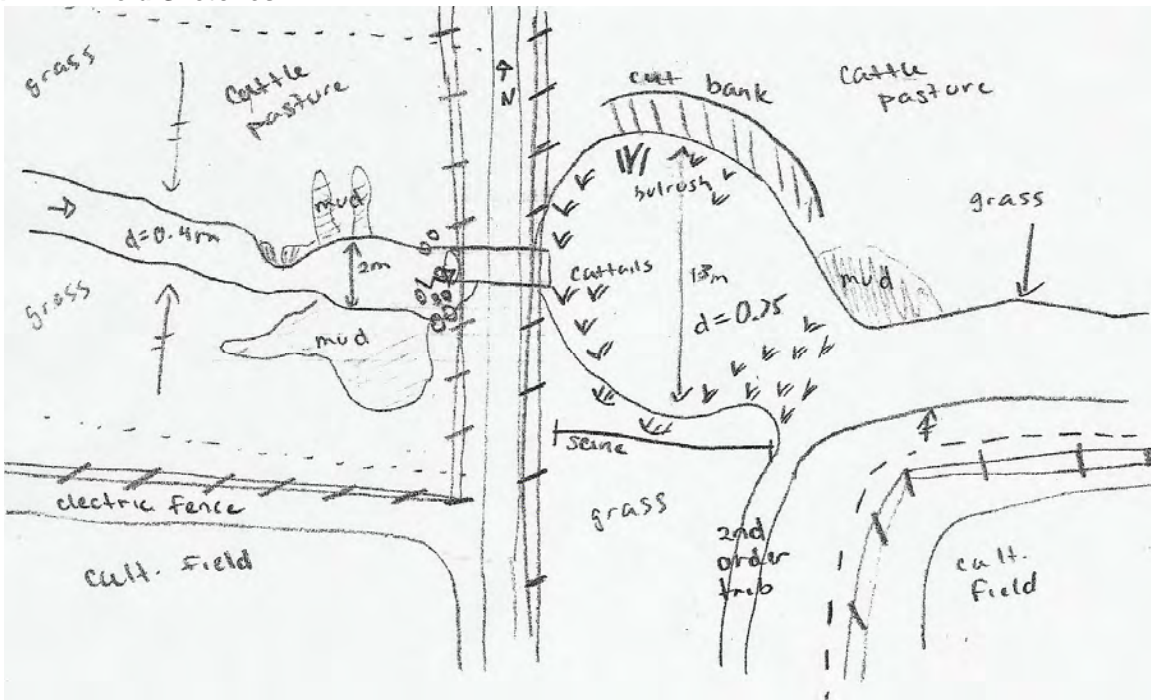 grass
cattle
pasture
N
cut bank
cattle
pasture
mud
bulrush
grass
d=0.4m
2m
cattails
13m
d=0.75
mud
grass
mud
seine
electric fence
grass
2nd
order
trib
cult. field
cult.
field